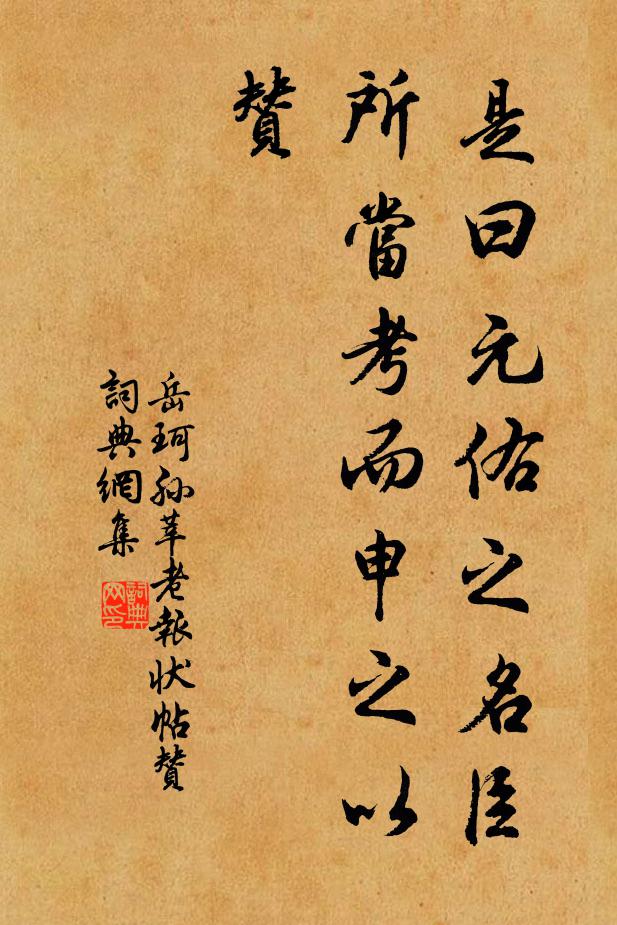 是曰元佑之名臣
所當考而申之以
贊
岳珂孙莘老報状帖贊
詞典網集
詞典网印